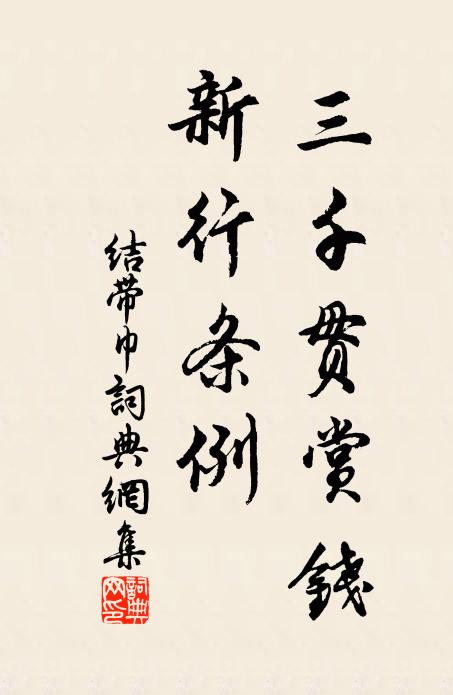 三千贯赏錢
新行条例
结带巾詞典網集
詞典网印